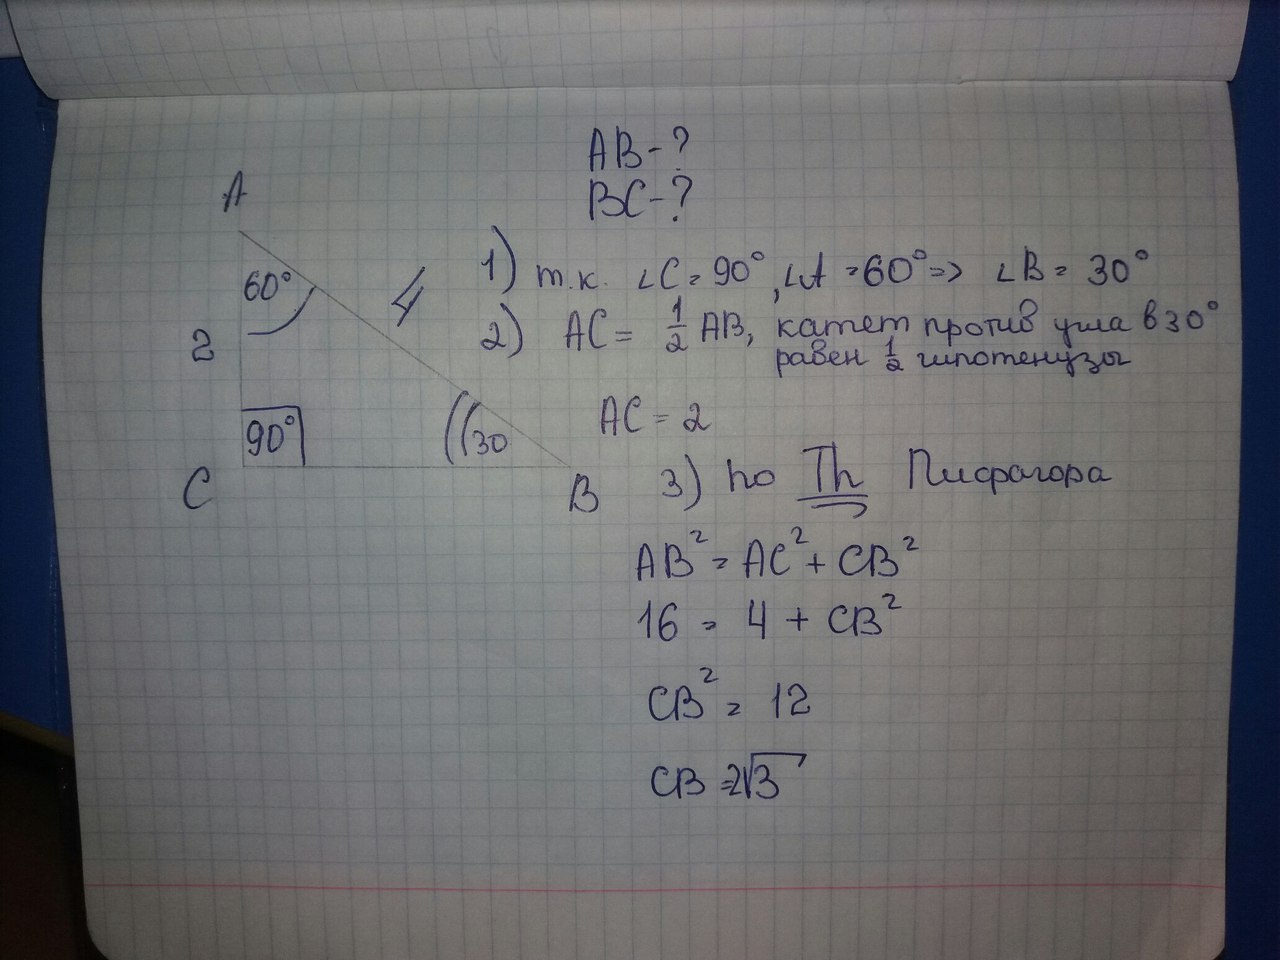 AB-?
BC-?
A
60°
4
2
90°
30
C
B
1) т.к. ∠C=90°, ∠A=60°=> ∠B= 30°
2) AC= 1/2 AB, катет против угла в 30°
равен 1/2 гипотенузы
AC = 2
3) по Th Пифагора
AB² = AC² + CB²
16 = 4 + CB²
CB² = 12
CB =2√3